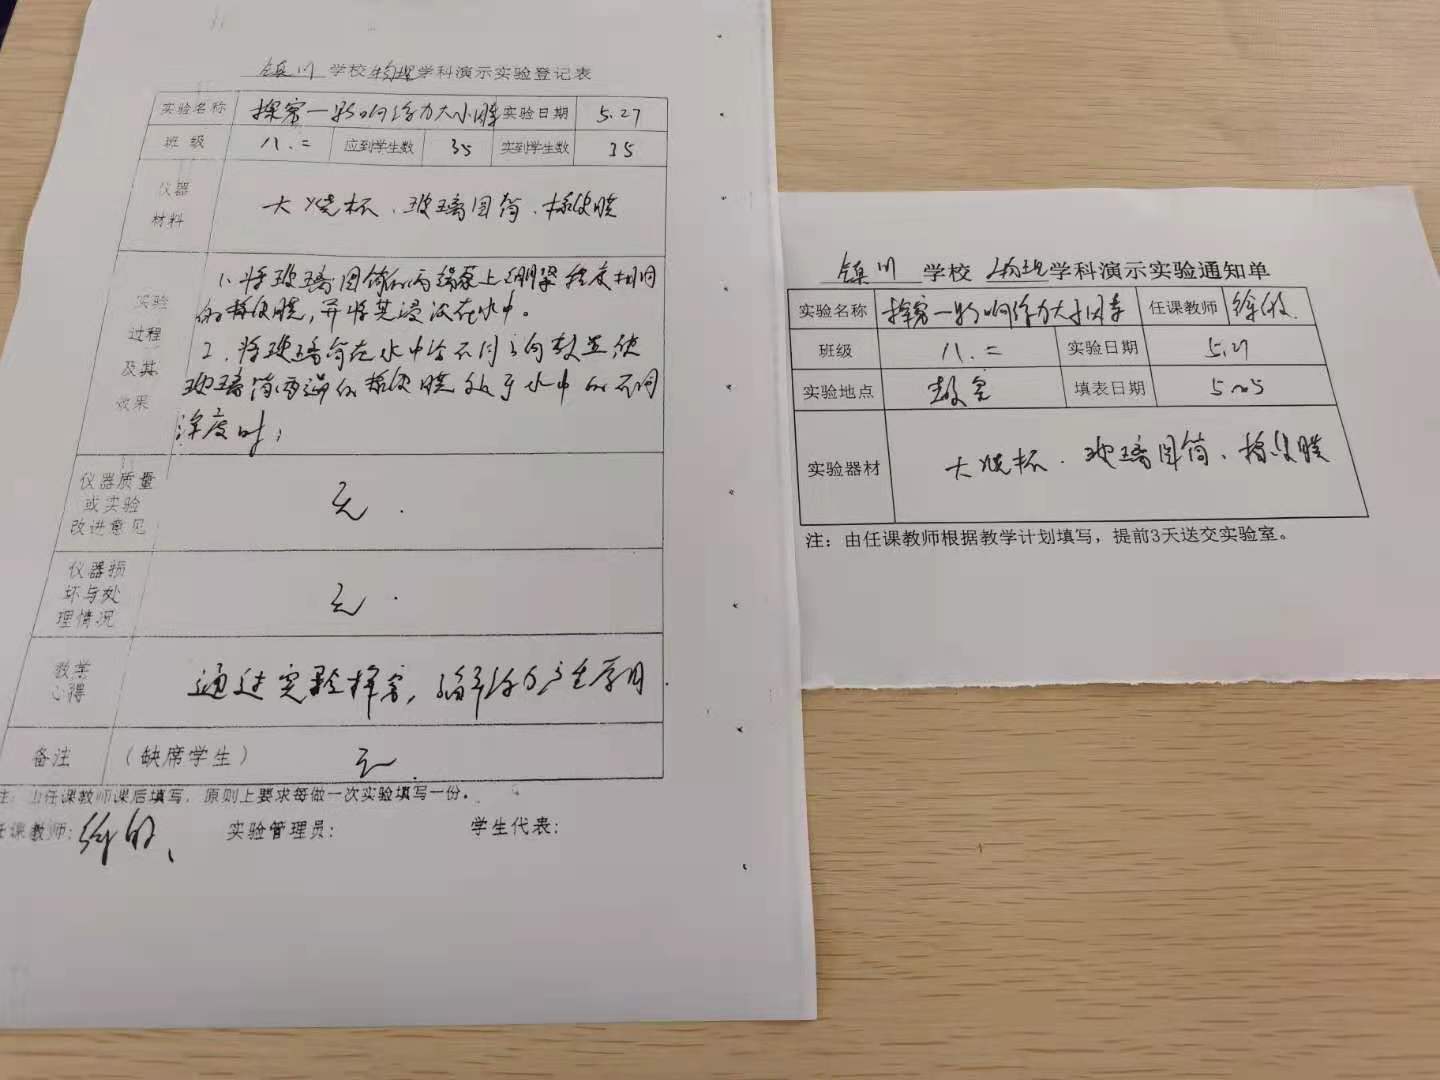 镇川 学校 物理 学科演示实验登记表
实验名称 探究—影响浮力大小因素 实验日期 5.27
班 级 八.二 应到学生数 35 实到学生数 35
仪器
材料
大烧杯、玻璃圆筒、橡皮膜
实验
过程
及其
效果
1、将玻璃圆筒的两端蒙上绷紧程度相同
的橡皮膜,并将其浸没在水中。
2、将玻璃筒在水中沿不同方向放置使
玻璃筒两端的橡皮膜处于水中的不同
深度时;
仪器质量
或实验
改进意见
无.
仪器损
坏与处
理情况
无.
教学
心得
通过实验探究,了解浮力产生原因.
备注 (缺席学生) 无.
注:由任课教师课后填写,原则上要求每做一次实验填写一份。
任课教师: 实验管理员: 学生代表:
镇川 学校 物理 学科演示实验通知单
实验名称 探究—影响浮力大小因素 任课教师
班级 八.二 实验日期 5.27
实验地点 教室 填表日期 5.25
实验器材 大烧杯、玻璃圆筒、橡皮膜
注:由任课教师根据教学计划填写,提前3天送交实验室。